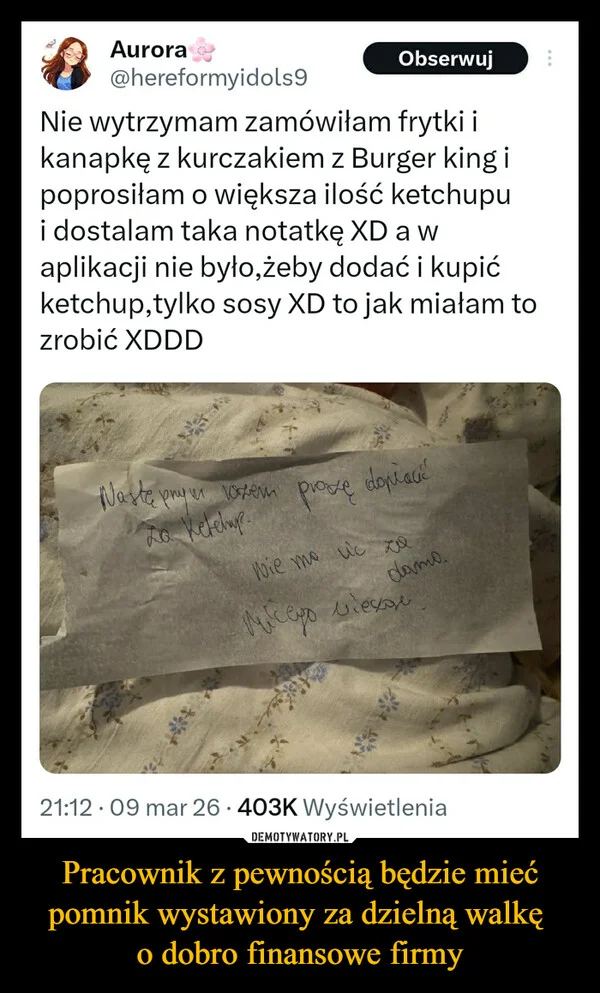 Aurora🌸
@hereformyidols9
Obserwuj
Nie wytrzymam zamówiłam frytki i
kanapkę z kurczakiem z Burger king i
poprosiłam o większa ilość ketchupu
i dostalam taka notatkę XD a w
aplikacji nie było,żeby dodać i kupić
ketchup,tylko sosy XD to jak miałam to
zrobić XDDD
Następnym razem proszę dopłacić
za Ketchup.
Nie ma nic za
damo.
21:12 · 09 mar 26 · 403K Wyświetlenia
DEMOTYWATORY.PL
Pracownik z pewnością będzie mieć
pomnik wystawiony za dzielną walkę
o dobro finansowe firmy